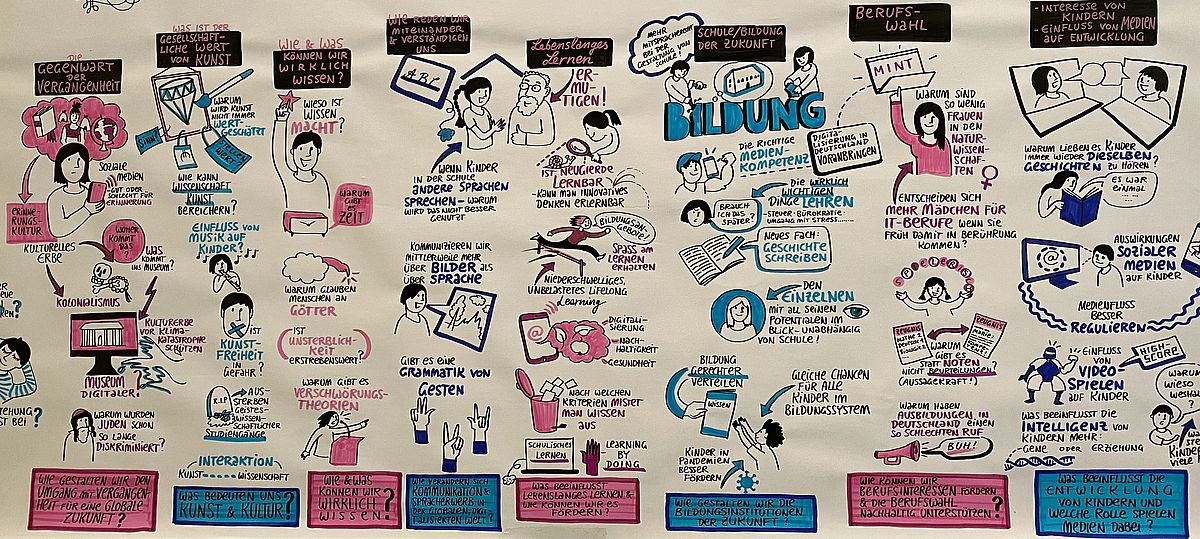 DIE
GEGENWART
DER
VERGANGENHEIT
SOZIALE
MEDIEN
GUT ODER
SCHLECHT FÜR
ERINNERUNG
ERINNE-
RUNGS-
KULTUR
KULTURELLES
ERBE
WOHER
KOMMT
DAS?
WAS
KOMMT
INS MUSEUM?
KOLONIALISMUS
KULTURERBE
VOR KLIMA-
KATASTROPHE
SCHÜTZEN
MUSEUM
DIGITALER!
WARUM WURDEN
JUDEN SCHON
SO LANGE
DISKRIMINIERT?
WIE GESTALTEN WIR DEN
UMGANG MIT VERGANGEN-
HEIT FÜR EINE GLOBALE
ZUKUNFT?
WAS IST DER
GESELLSCHAFT-
LICHE WERT
VON KUNST
WARUM
WIRD KUNST
NICHT IMMER
WERT-
GESCHÄTZT
SINN?
WERT
WIE KANN
WISSENSCHAFT
KUNST
BEREICHERN?
EINFLUSS VON
MUSIK AUF
KINDER?
IST
KUNST-
FREIHEIT
IN
GEFAHR?
R.I.P.
AUS-
STERBEN
GEISTES-
WISSEN-
SCHAFTLICHER
STUDIENGÄNGE
INTERAKTION
KUNST WISSENSCHAFT
WAS BEDEUTEN UNS
KUNST & KULTUR?
WIE & WAS
KÖNNEN WIR
WIRKLICH
WISSEN?
WIESO IST
WISSEN
MACHT?
WARUM
GIBT
ES
ZEIT
WARUM GLAUBEN
MENSCHEN AN
GÖTTER
(UNSTERBLICH-
KEIT
ERSTREBENSWERT?)
WARUM GIBT ES
VERSCHWÖRUNGS-
THEORIEN
WIE & WAS
KÖNNEN WIR
WIRKLICH
WISSEN?
WIE REDEN WIR
MITEINANDER
& VERSTÄNDIGEN
UNS
ABC
WENN KINDER
IN DER SCHULE
ANDERE SPRACHEN
SPRECHEN - WARUM
WIRD DAS NICHT BESSER
GENUTZT
KOMMUNIZIEREN WIR
MITTLERWEILE MEHR
ÜBER BILDER ALS
SPRACHE
GIBT ES EINE
GRAMMATIK VON
GESTEN
WIE VERÄNDERN SICH
KOMMUNIKATION &
SPRACHERWERB IN
DER GLOBALEN, DIGI-
TALISIERTEN WELT?
Lebenslanges
Lernen
ER-
MU-
TIGEN!
IST NEUGIERDE
LERNBAR
- KANN MAN INNOVATIVES
DENKEN ERLERNBAR
BILDUNGSAN-
GEBOTE!
SPASS AM
LERNEN
ERHALTEN
NIEDERSCHWELLIGES,
UNBELASTETES LIFELONG
Learning
@
DIGITALI-
SIERUNG
NACH-
HALTIGKEIT
GESUNDHEIT
NACH WELCHEN
KRITERIEN MISTET
MAN WISSEN
AUS
SCHULISCHES
LERNEN
LEARNING
BY
DOING
WAS BEEINFLUSST
LEBENSLANGES LERNEN &
WIE KÖNNEN WIR ES
FÖRDERN?
MEHR
MITSPRACHERECHT
BEI DER
GESTALTUNG VON
SCHULE!
SCHULE/BILDUNG
DER ZUKUNFT
BILDUNG
DIE RICHTIGE
MEDIEN-
KOMPETENZ
DIGITA-
LISIERUNG IN
DEUTSCHLAND
VORANBRINGEN
BRAUCH
ICH DAS
SPÄTER?
DIE WIRKLICH
WICHTIGEN
DINGE LEHREN
- STEUER- BÜROKRATIE-
UMGANG MIT STRESS......
NEUES FACH:
GESCHICHTE
SCHREIBEN
DEN
EINZELNEN
MIT ALL SEINEN
POTENTIALEN IM
BLICK-UNABHÄNGIG
VON SCHULE!
BILDUNG
GERECHTER
VERTEILEN
WISSEN
GLEICHE CHANCEN
FÜR ALLE
KINDER IM
BILDUNGSSYSTEM
KINDER IN
PANDEMIEN
BESSER
FÖRDERN
WIE GESTALTEN WIR DIE
BILDUNGSINSTITUTIONEN
DER ZUKUNFT?
BERUFS-
WAHL
MINT
WARUM SIND
SO WENIG
FRAUEN
IN DEN
NATUR-
WISSEN-
SCHAF-
TEN
ENTSCHEIDEN SICH
MEHR MÄDCHEN FÜR
IT-BERUFE WENN SIE
FRÜH DAMIT IN BERÜHRUNG
KOMMEN?
ZEUGNIS
ZEUGNIS
WARUM
GIBT ES NOTEN
NICHT BEURTEILUNGEN?
(AUSSAGEKRAFT!)
WARUM HABEN
AUSBILDUNGEN IN
DEUTSCHLAND EINEN
SO SCHLECHTEN RUF
BUH!
WIE KÖNNEN WIR
BERUFSINTERESSEN FÖRDERN
& DIE BERUFSWAHL
NACHHALTIG UNTERSTÜTZEN?
- INTERESSE VON
KINDERN
- EINFLUSS VON MEDIEN
AUF ENTWICKLUNG
WARUM LIEBEN ES KINDER
IMMER WIEDER DIESELBEN
GESCHICHTEN ZU HÖREN?
ES WAR
EINMAL
@
AUSWIRKUNGEN
SOZIALER
MEDIEN
AUF KINDER
MEDIENFLUSS
BESSER
REGULIEREN
EINFLUSS
VON
VIDEO-
SPIELEN
AUF KINDER
HIGH-
SCORE!
WAS BEEINFLUSST DIE
INTELLIGENZ VON
KINDERN MEHR:
GENE ODER ERZIEHUNG
WARUM
WIESO
WESHA
WAS BEEINFLUSST DIE
ENTWICKLUNG
VON KINDERN UND
WELCHE ROLLE SPIELEN
MEDIEN DABEI?